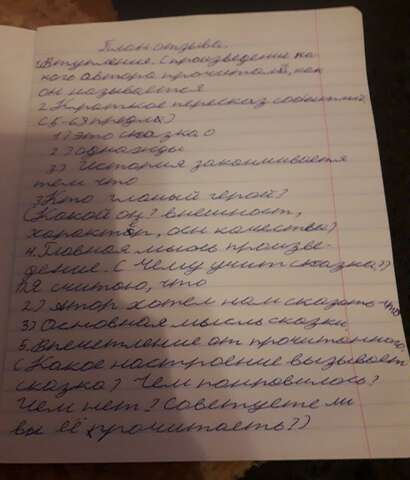 План отзыва.
1. Вступление. (произведение ка-
кого автора прочитали, как
он называется
2. Краткое пересказ событий
(5-6 предлож)
1) Это сказка о
2) однажды
3) История заканчивается
тем что
3. Кто главный герой?
(Какой он? внешност,
характер, осн качества)
4. Главная мысль произве-
дение. (Чему учит сказка?)
1) Я считаю, что
2) Автор хотел нам сказать что
3) Основная мысль сказки
5. Впечетление от прочитанного
(Какое настроение вызывает
сказка? Чем понровилось?
Чем нет? Советуете ли
вы её прочитать?)